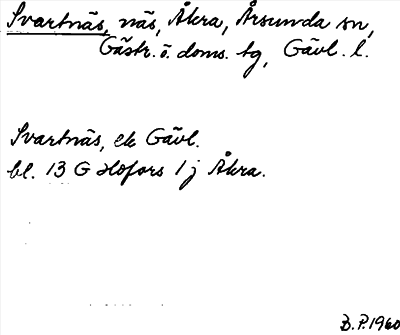 Svartnäs, näs, Åkra, Årsunda sn,
Gästr. ö. doms. tg, Gävl. l.
Svartnäs, ek Gävl.
bl. 13 G Hofors 1 j Åkra.
B.P. 1960